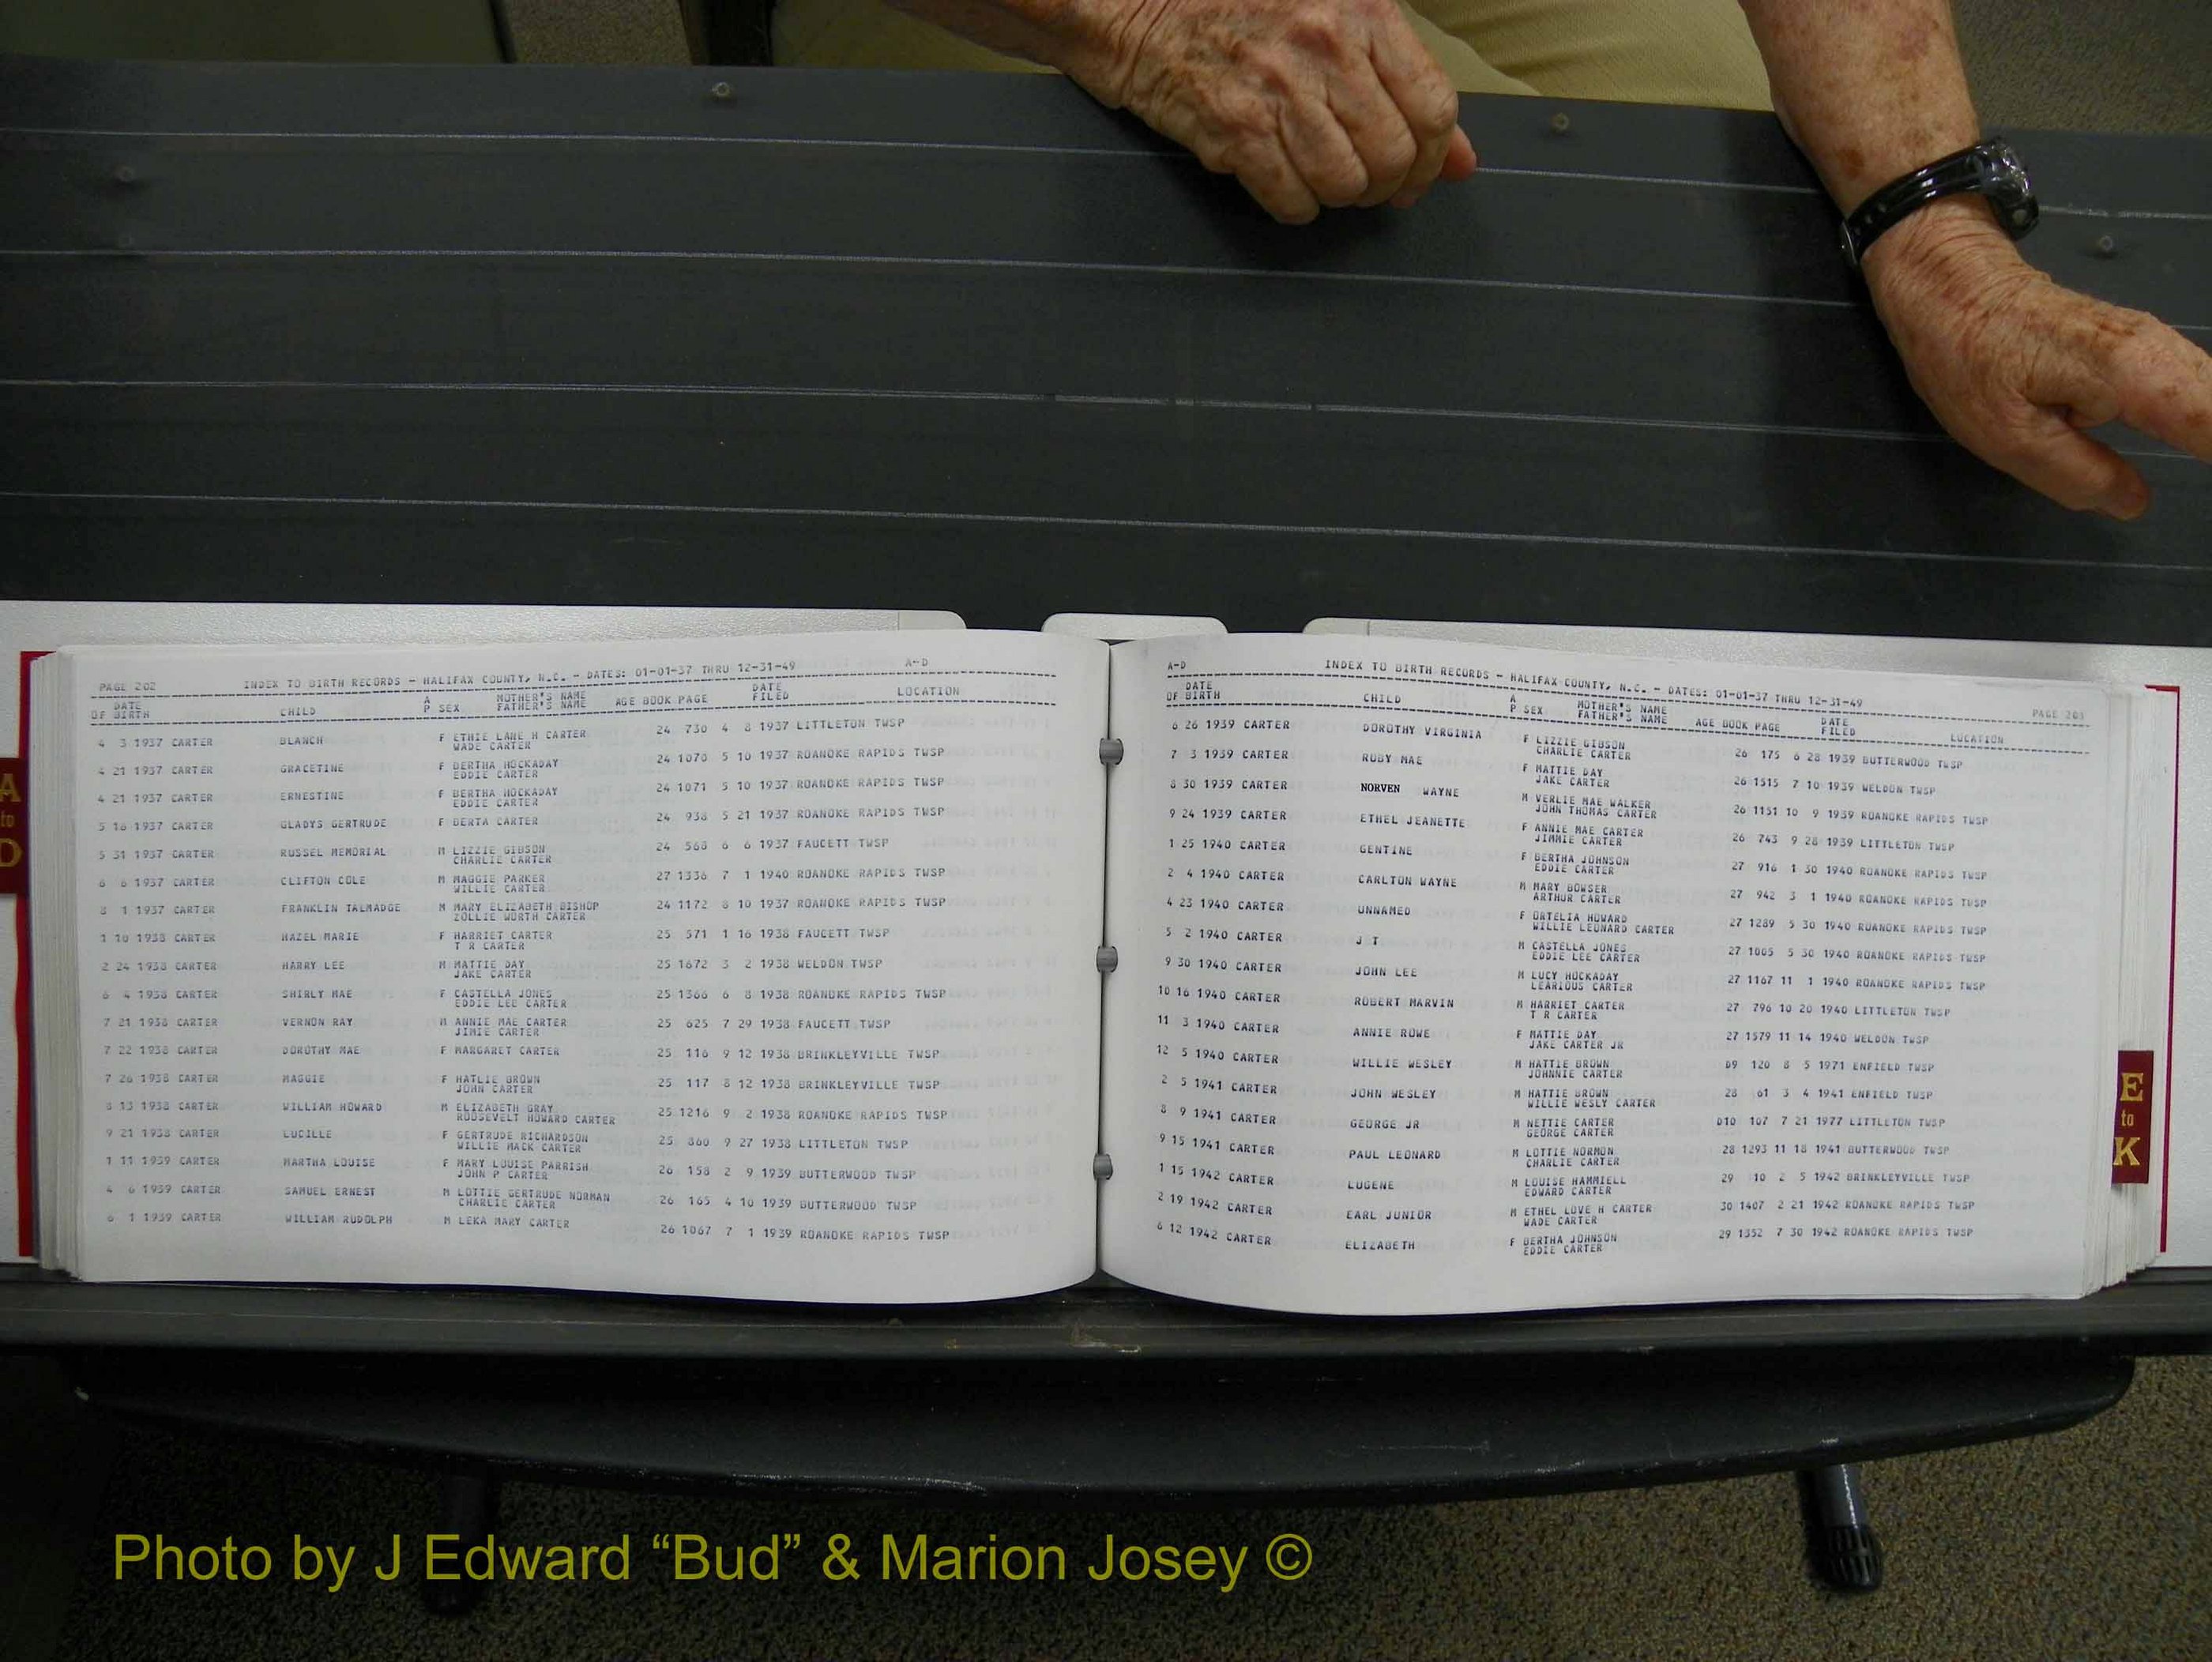 PAGE 202 INDEX TO BIRTH RECORDS - HALIFAX COUNTY, N.C. - DATES: 01-01-37 THRU 12-31-49 A-D
DATE A MOTHER'S NAME DATE
OF BIRTH CHILD P SEX FATHER'S NAME AGE BOOK PAGE FILED LOCATION
4 3 1937 CARTER BLANCH F ETHIE LANE H CARTER 24 730 4 8 1937 LITTLETON TWSP
WADE CARTER
4 21 1937 CARTER GRACETINE F BERTHA HOCKADAY 24 1070 5 10 1937 ROANOKE RAPIDS TWSP
EDDIE CARTER
4 21 1937 CARTER ERNESTINE F BERTHA HOCKADAY 24 1071 5 10 1937 ROANOKE RAPIDS TWSP
EDDIE CARTER
5 16 1937 CARTER GLADYS GERTRUDE F BERTA CARTER 24 938 5 21 1937 ROANOKE RAPIDS TWSP
5 31 1937 CARTER RUSSEL MEMORIAL M LIZZIE GIBSON 24 568 6 6 1937 FAUCETT TWSP
CHARLIE CARTER
6 6 1937 CARTER CLIFTON COLE M MAGGIE PARKER 27 1336 7 1 1940 ROANOKE RAPIDS TWSP
WILLIE CARTER
8 1 1937 CARTER FRANKLIN TALMADGE M MARY ELIZABETH BISHOP 24 1172 8 10 1937 ROANOKE RAPIDS TWSP
ZOLLIE WORTH CARTER
1 10 1938 CARTER HAZEL MARIE F HARRIET CARTER 25 571 1 16 1938 FAUCETT TWSP
T R CARTER
2 24 1938 CARTER HARRY LEE M MATTIE DAY 25 1672 3 2 1938 WELDON TWSP
JAKE CARTER
6 4 1938 CARTER SHIRLY MAE F CASTELLA JONES 25 1366 6 8 1938 ROANOKE RAPIDS TWSP
EDDIE LEE CARTER
7 21 1938 CARTER VERNON RAY M ANNIE MAE CARTER 25 625 7 29 1938 FAUCETT TWSP
JIMIE CARTER
7 22 1938 CARTER DOROTHY MAE F MARGARET CARTER 25 116 9 12 1938 BRINKLEYVILLE TWSP
7 26 1938 CARTER MAGGIE F HATLIE BROWN 25 117 8 12 1938 BRINKLEYVILLE TWSP
JOHN CARTER
8 13 1938 CARTER WILLIAM HOWARD M ELIZABETH GRAY 25 1216 9 2 1938 ROANOKE RAPIDS TWSP
ROOSEVELT HOWARD CARTER
9 21 1938 CARTER LUCILLE F GERTRUDE RICHARDSON 25 860 9 27 1938 LITTLETON TWSP
WILLIE MACK CARTER
1 11 1939 CARTER MARTHA LOUISE F MARY LOUISE PARRISH 26 158 2 9 1939 BUTTERWOOD TWSP
JOHN P CARTER
4 6 1939 CARTER SAMUEL ERNEST M LOTTIE GERTRUDE NORMAN 26 165 4 10 1939 BUTTERWOOD TWSP
CHARLIE CARTER
6 1 1939 CARTER WILLIAM RUDOLPH M LEKA MARY CARTER 26 1067 7 1 1939 ROANOKE RAPIDS TWSP
A-D INDEX TO BIRTH RECORDS - HALIFAX COUNTY, N.C. - DATES: 01-01-37 THRU 12-31-49 PAGE 203
DATE A MOTHER'S NAME DATE
OF BIRTH CHILD P SEX FATHER'S NAME AGE BOOK PAGE FILED LOCATION
6 26 1939 CARTER DOROTHY VIRGINIA F LIZZIE GIBSON 26 175 6 28 1939 BUTTERWOOD TWSP
CHARLIE CARTER
7 3 1939 CARTER RUBY MAE F MATTIE DAY 26 1515 7 10 1939 WELDON TWSP
JAKE CARTER
8 30 1939 CARTER NORVEN WAYNE M VERLIE MAE WALKER 26 1151 10 9 1939 ROANOKE RAPIDS TWSP
JOHN THOMAS CARTER
9 24 1939 CARTER ETHEL JEANETTE F ANNIE MAE CARTER 26 743 9 28 1939 LITTLETON TWSP
JIMMIE CARTER
1 25 1940 CARTER GENTINE F BERTHA JOHNSON 27 916 1 30 1940 ROANOKE RAPIDS TWSP
EDDIE CARTER
2 4 1940 CARTER CARLTON WAYNE M MARY BOWSER 27 942 3 1 1940 ROANOKE RAPIDS TWSP
ARTHUR CARTER
4 23 1940 CARTER UNNAMED F ORTELIA HOWARD 27 1289 5 30 1940 ROANOKE RAPIDS TWSP
WILLIE LEONARD CARTER
5 2 1940 CARTER J T M CASTELLA JONES 27 1005 5 30 1940 ROANOKE RAPIDS TWSP
EDDIE LEE CARTER
9 30 1940 CARTER JOHN LEE M LUCY HOCKADAY 27 1167 11 1 1940 ROANOKE RAPIDS TWSP
LEARIOUS CARTER
10 16 1940 CARTER ROBERT MARVIN M HARRIET CARTER 27 796 10 20 1940 LITTLETON TWSP
T R CARTER
11 3 1940 CARTER ANNIE ROWE F MATTIE DAY 27 1579 11 14 1940 WELDON TWSP
JAKE CARTER JR
12 5 1940 CARTER WILLIE WESLEY M HATTIE BROWN D9 120 8 5 1971 ENFIELD TWSP
JOHNNIE CARTER
2 5 1941 CARTER JOHN WESLEY M HATTIE BROWN 28 61 3 4 1941 ENFIELD TWSP
WILLIE WESLY CARTER
8 9 1941 CARTER GEORGE JR M NETTIE CARTER D10 107 7 21 1977 LITTLETON TWSP
GEORGE CARTER
9 15 1941 CARTER PAUL LEONARD M LOTTIE NORMON 28 1293 11 18 1941 BUTTERWOOD TWSP
CHARLIE CARTER
1 15 1942 CARTER LUGENE M LOUISE HAMMIELL 29 10 2 5 1942 BRINKLEYVILLE TWSP
EDWARD CARTER
2 19 1942 CARTER EARL JUNIOR M ETHEL LOVE H CARTER 30 1407 2 21 1942 ROANOKE RAPIDS TWSP
WADE CARTER
6 12 1942 CARTER ELIZABETH F BERTHA JOHNSON 29 1352 7 30 1942 ROANOKE RAPIDS TWSP
EDDIE CARTER
A
to
D
E
to
K
Photo by J Edward “Bud” & Marion Josey ©